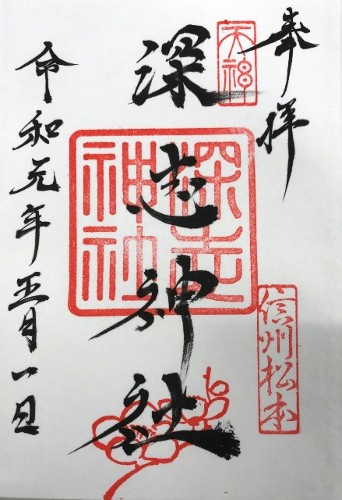 奉拝
天神
信州松本
深志神社
深志
神社
令和元年五月一日